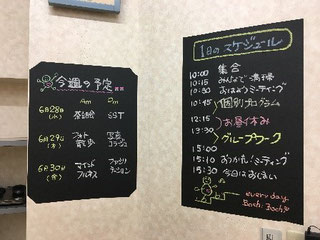 今週の予定
Am Pm
6月28日
(水) 茶話会 SST
6月29日
(木) フォト
散歩 写真
コラージュ
6月30日
(金) マインド
フルネス ファシリ
テーション
1日のスケジュール
10:00 集合
10:15 みんなで清掃
10:30 おはようミーティング
10:45 個別プログラム
12:15 お昼休み
13:30 グループワーク
15:00
15:10 おつかれミーティング
15:30 今日はおしまい
every day